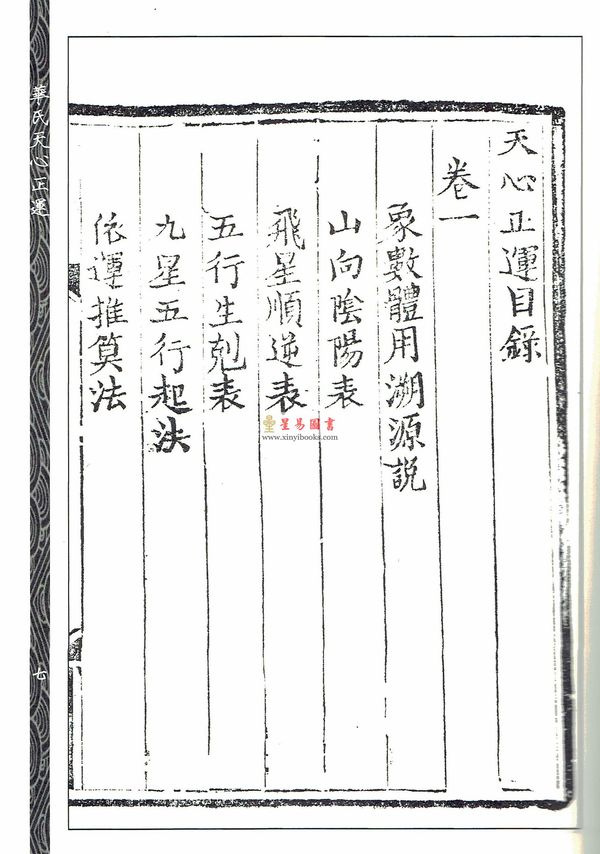 天心正運目錄
卷一
象數體用溯源說
山向陰陽表
飛星順逆表
五行生剋表
九星五行起決
依運推算法
星易圖書
www.xinyibooks.com
華氏天心正運
七